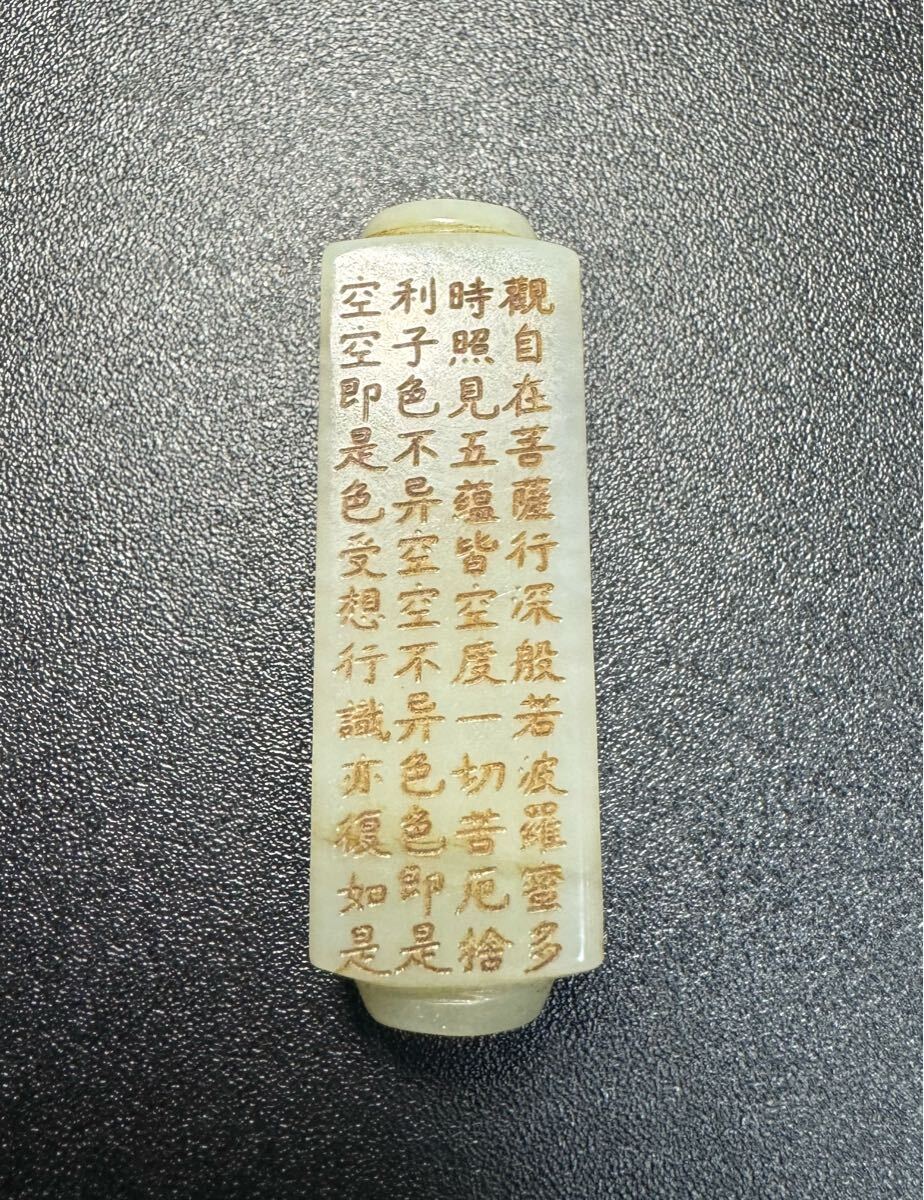 觀自在菩薩行深般若波羅蜜多
時照見五蘊皆空度一切苦厄捨
利子色不异空空不异色色即是
空空即是色受想行識亦復如是